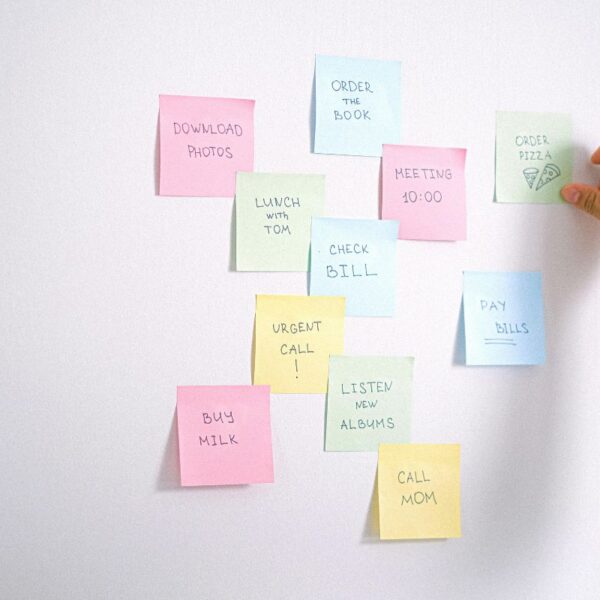 ORDER
THE
BOOK
DOWNLOAD
PHOTOS
ORDER
PIZZA
MEETING
10:00
LUNCH
with
TOM
CHECK
BILL
PAY
BILLS
URGENT
CALL
!
LISTEN
NEW
ALBUMS
BUY
MILK
CALL
MOM